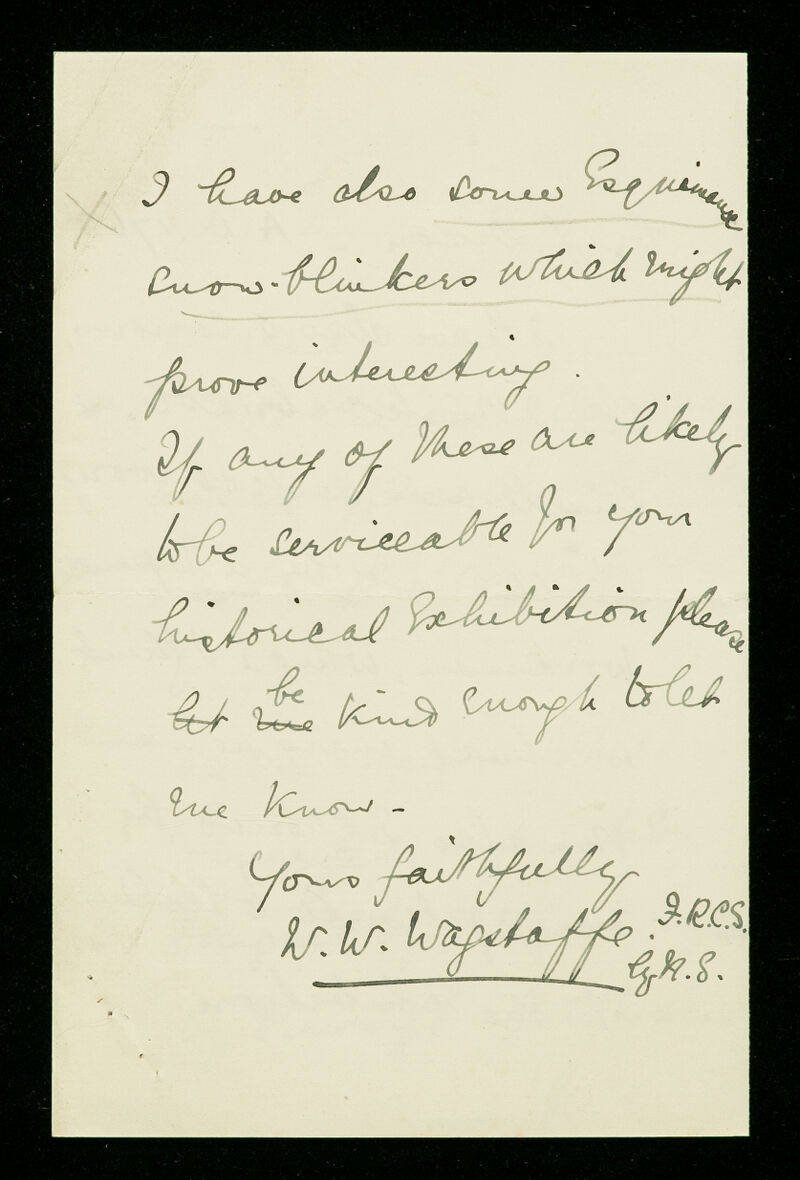 I have also some Esquimaux
snow-blinkers which might
prove interesting.
If any of these are likely
to be serviceable for your
historical Exhibition please
let me be kind enough to let
me know -
Yours faithfully
W. W. Wagstaffe. F.R.C.S.